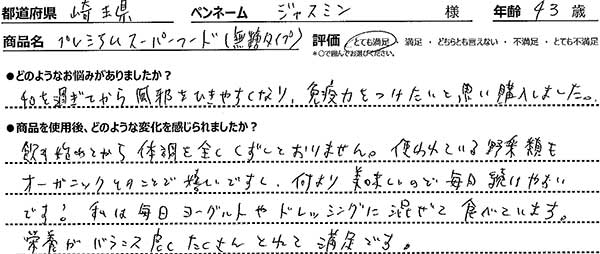 都道府県 埼玉県 ペンネーム ジャスミン 様 年齢 43 歳
商品名 プレミアムスーパーフード(無糖タイプ) 評価 とても満足 ・ 満足 ・ どちらとも言えない ・ 不満足 ・ とても不満足
*○で囲んでお選びください。
●どのようなお悩みがありましたか?
40を過ぎてから風邪をひきやすくなり、免疫力をつけたいと思い購入しました。
●商品を使用後、どのような変化を感じられましたか?
飲み始めてから体調を全くくずしておりません。使われている野菜類も
オーガニックとのことで嬉しいですし、何より美味しいので毎日続けやすい
です! 私は毎日ヨーグルトやドレッシングに混ぜて食べています。
栄養がバランス良くたくさんとれて満足です。